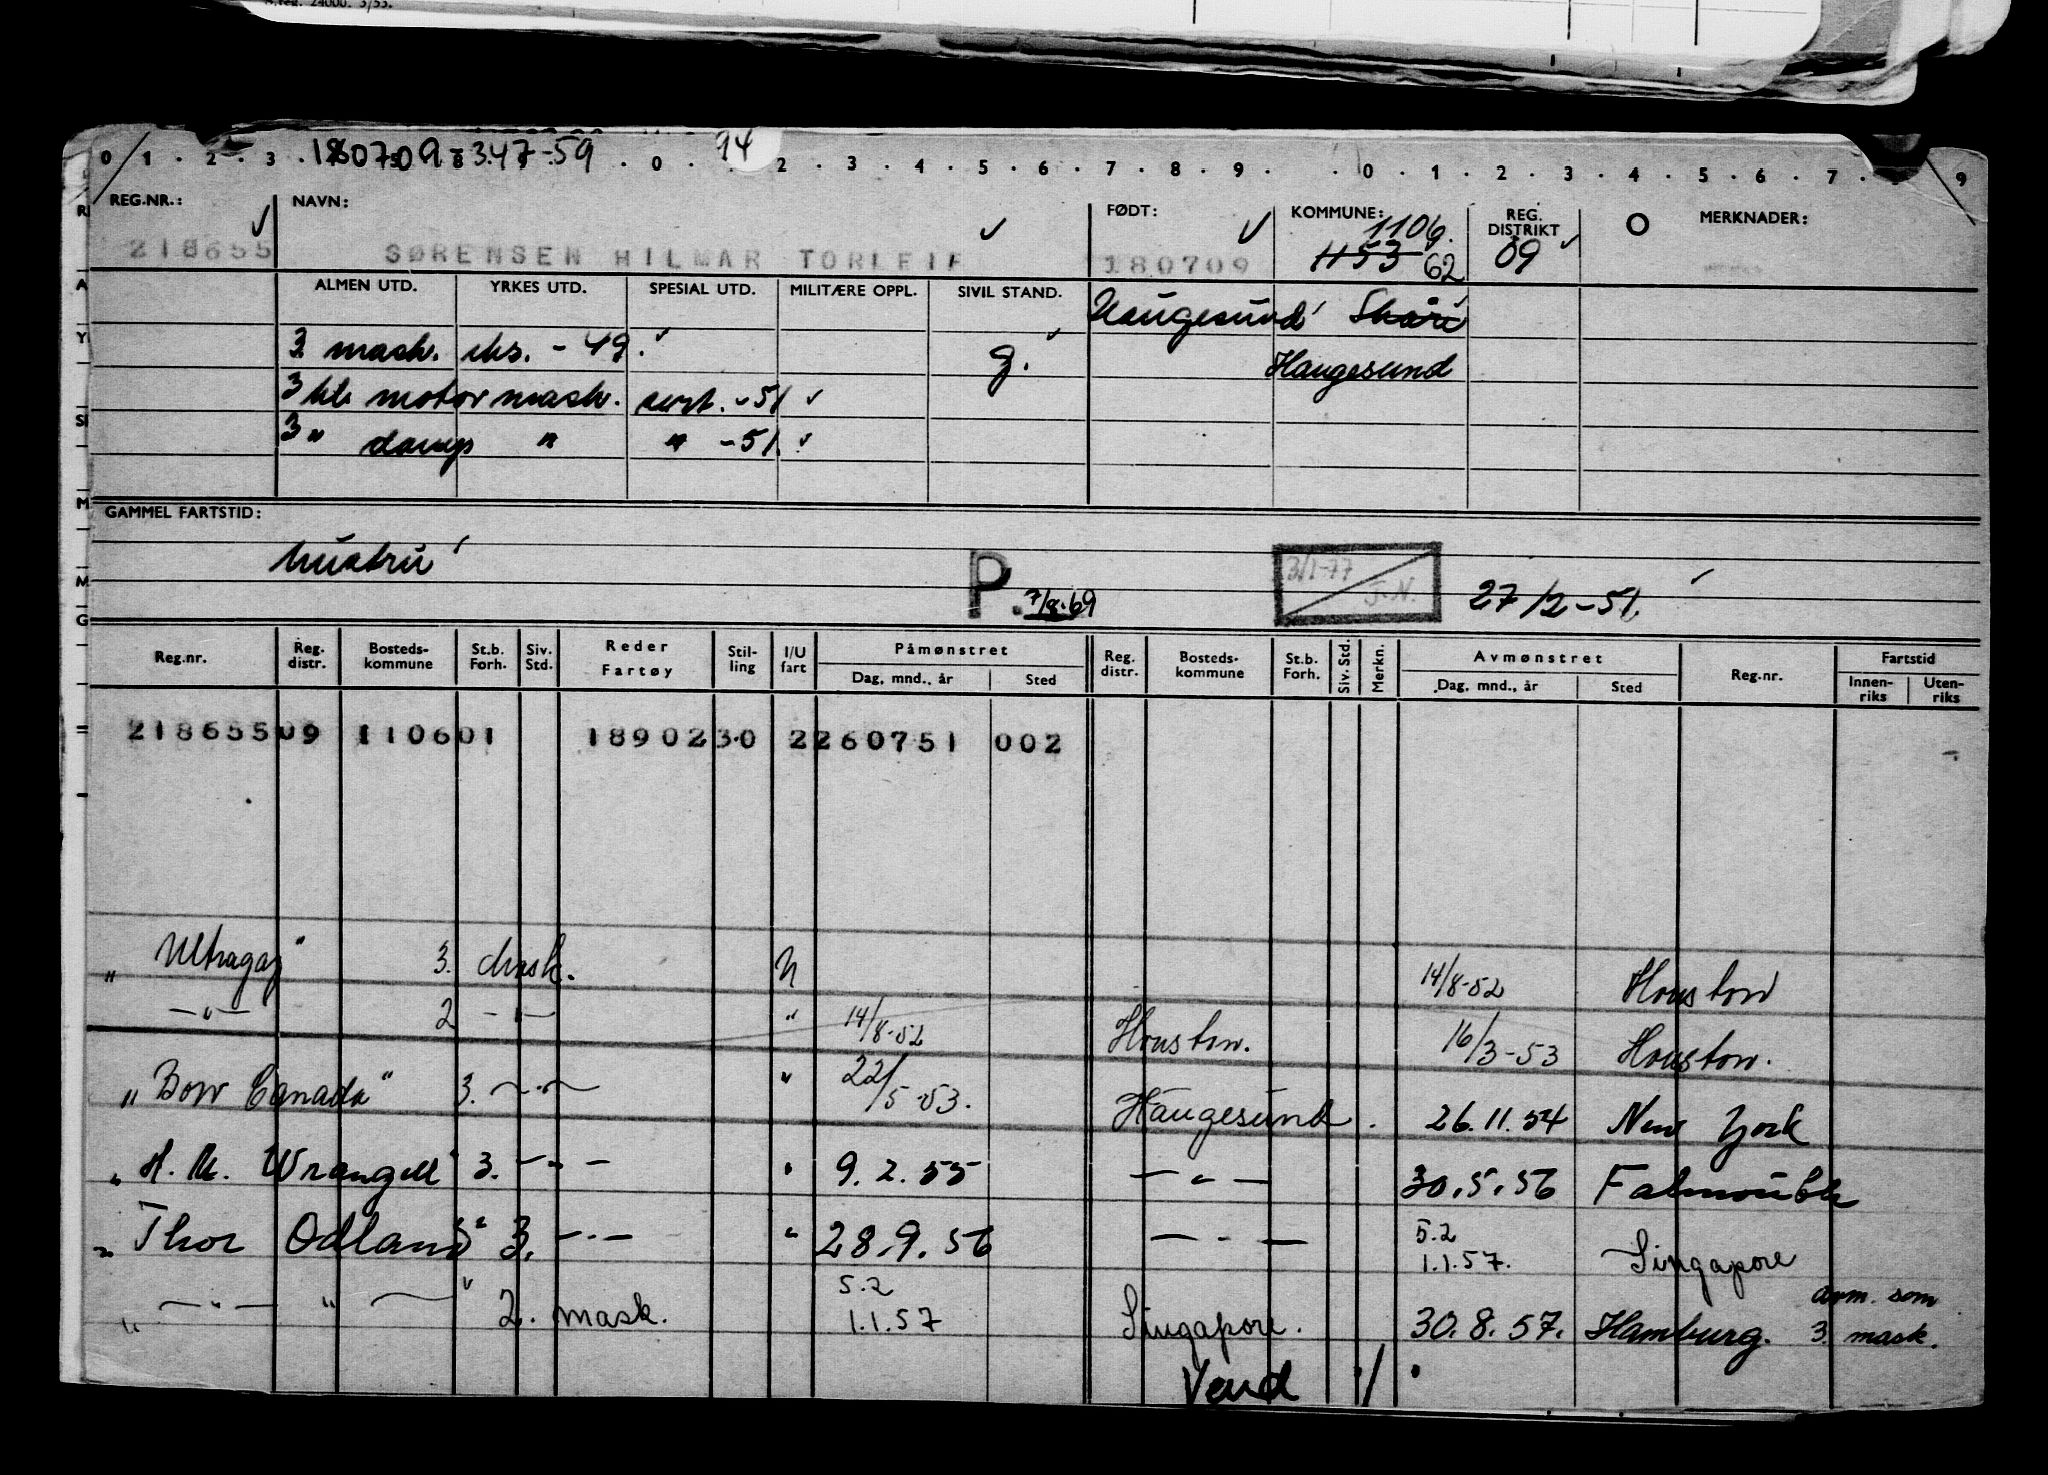 B.reg. 24000. 3/53.
180709-347-59 94
0 1 . 2 . 3 . 0 . 2 . 3 . 4 . 5 . 6 . 7 . 8 . 9 . . 0 . 1 . 2 . 3 . 4 . 5 . 6 . 7 . 9
REG.NR.: NAVN: FØDT: KOMMUNE: REG. DISTRIKT O MERKNADER:
1106.
218655 SØRENSEN HILMAR TORLEIF 180709 1153 62 09
ALMEN UTD. YRKES UTD. SPESIAL UTD. MILITÆRE OPPL. SIVIL STAND.
Haugesund Skåre
3. mask. eks. - 49. g. Haugesund
3 kl. motormask. sert. - 51
3 " damp " " - 51.
GAMMEL FARTSTID:
hustru
P. 7/8-69 3/1-77 J.N. 27/2-51.
Reg.nr. Reg. distr. Bosteds-kommune St.b. Forh. Siv. Std. Reder Fartøy Stil-ling I/U fart Påmønstret Reg. distr. Bosteds-kommune St.b. Forh. Siv. Std. Merkn. Avmønstret Reg.nr. Fartstid
Dag, mnd., år Sted Dag, mnd., år Sted Innen-riks Uten-riks
218655 09 1106 01 18902 30 2 260751 002
"Ultragaz" 3. Mask. U 14/8-52 Houston
—"— 2 —"— " 14/8-52 Houston. 16/3-53 Houston.
"Bow Canada" 3. —"— " 22/5-53. Haugesund. 26.11.54 New York
"H. M. Wrangell" 3. —"— " 9.2.55 —"— 30.5.56 Falmouth
"Thor Odland" 3. —"— " 28.9.56 —"— 5.2 1.1.57. Singapore
"—"— " —" 2. mask. 5.2 1.1.57 Singapore. 30.8.57. Hamburg. avm. som 3. mask.
Vend ./.